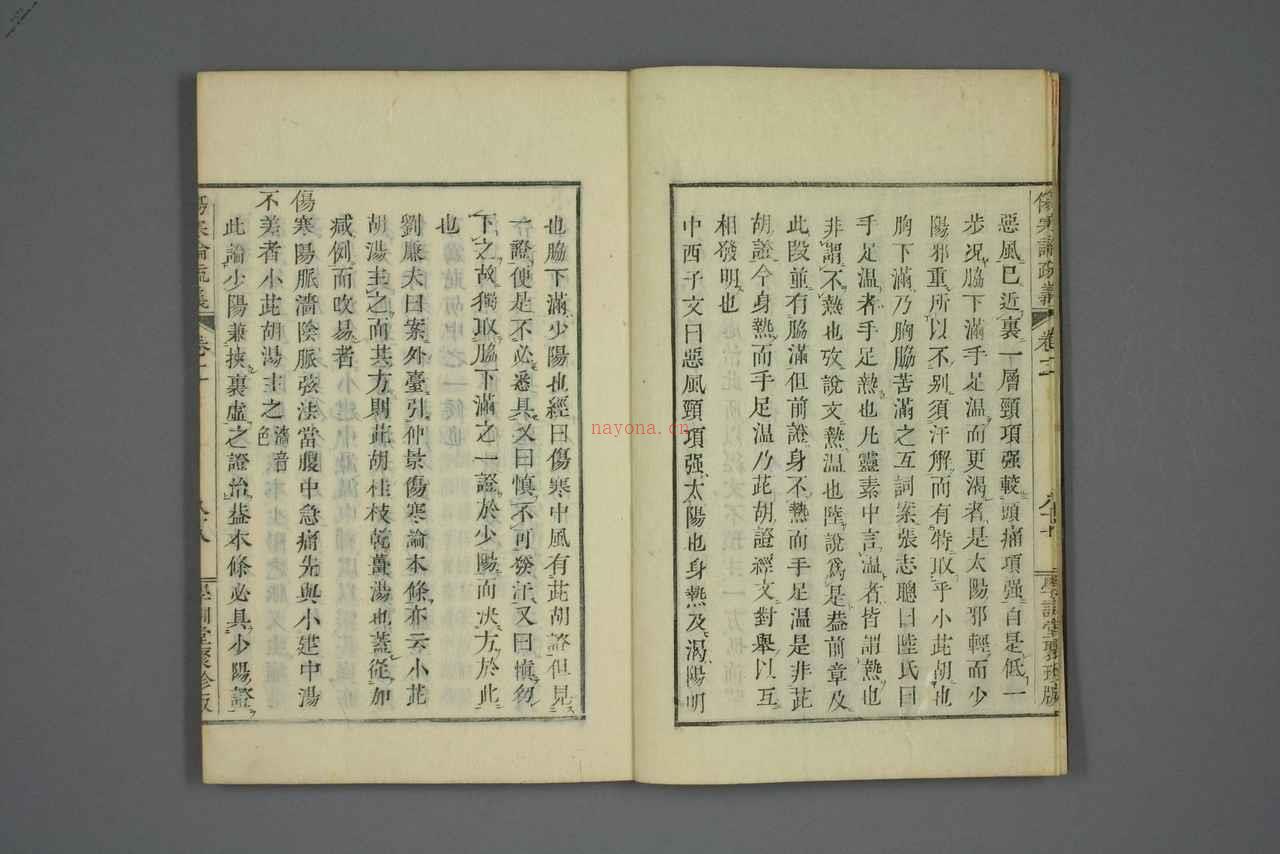 惡風已近裏一層頸項强較頭痛項强自是低一
步况脇下滿手足温而更渴者是太陽邪輕而少
陽邪重所以不别須汗解而有特取乎小茈胡也
胸下滿乃胸脇苦滿之互詞案張志聰曰陸氏曰
手足温者手足熱也凡靈素中言温者皆謂熱也
非謂不熱也攷說文熱温也陸說爲是葢前章及
此段並有脇滿但前證身不熱而手足温是非茈
胡證今身熱而手足温乃茈胡證經文對舉以互
相發明也
中西子文曰惡風頸項强太陽也身熱及渴陽明
也脇下滿少陽也經曰傷寒中風有茈胡證但見
一證便是不必悉具又曰愼不可發汗又曰愼勿
下之故獨取脇下滿之一證於少陽而决方於此
也
劉廉夫曰案外臺引仲景傷寒論本條亦云小茈
胡湯主之而其方則茈胡桂枝乾薑湯也蓋從加
減例而改易者
傷寒陽脈濇陰脈弦法當腹中急痛先與小建中湯
不差者小茈胡湯主之濇音色
此論少陽兼挾裏虛之證治葢本條必具少陽證
傷寒論疏義
卷二
學訓堂聚珍版
nayona.cn